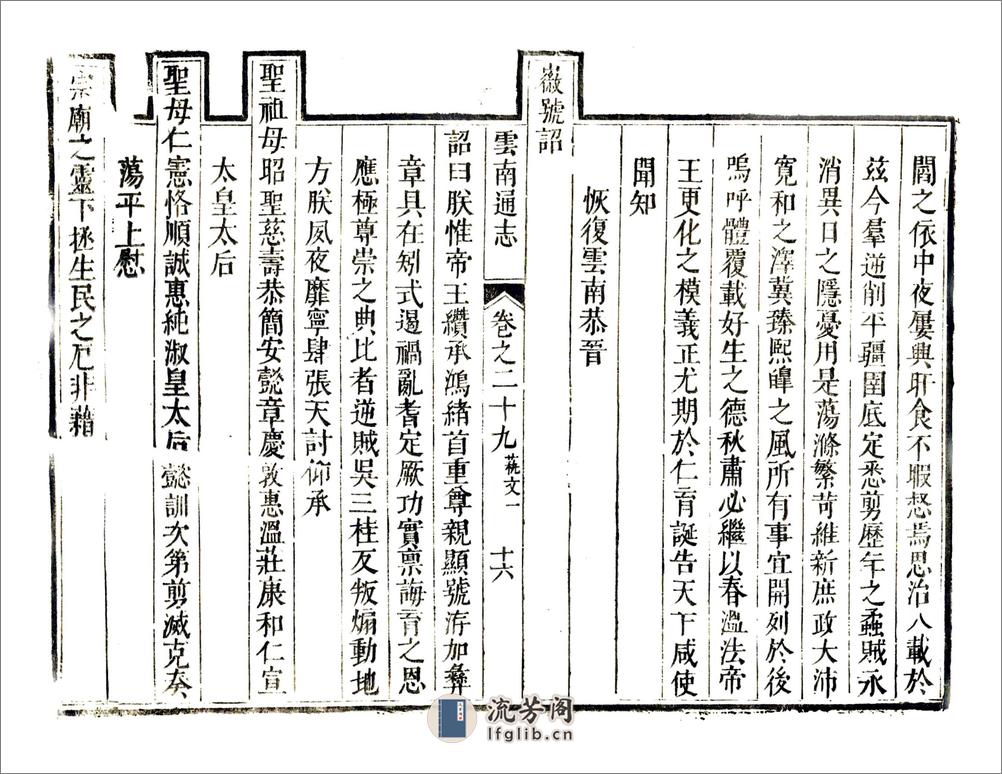 閭之依中夜屢興旰食不暇惄焉思治八載於
茲今羣逆削平疆圉底定悉剪歷年之蟊賊永
消異日之隱憂用是蕩滌繁苛維新庶政大沛
寬和之澤冀臻熙皥之風所有事宜開列於後
嗚呼體覆載好生之德秋肅必繼以春溫法帝
王更化之模義正尤期於仁育誕告天下咸使
聞知
恢復雲南恭晉
徽號詔
雲南通志 卷之二十九 藝文一 十六
詔曰朕惟帝王纘承鴻緒首重尊親顯號洊加彝
章具在矧式遏禍亂耆定厥功實禀誨育之恩
應極尊崇之典比者逆賊吳三桂反叛煽動地
方朕夙夜靡寧肆張天討仰承
聖祖母昭聖慈壽恭簡安懿章慶敦惠溫莊康和仁宣
太皇太后
聖母仁憲恪順誠惠純淑皇太后懿訓次第剪滅克奏
蕩平上慰
宗廟之靈下拯生民之厄非藉
流芳阁
lfglib.cn